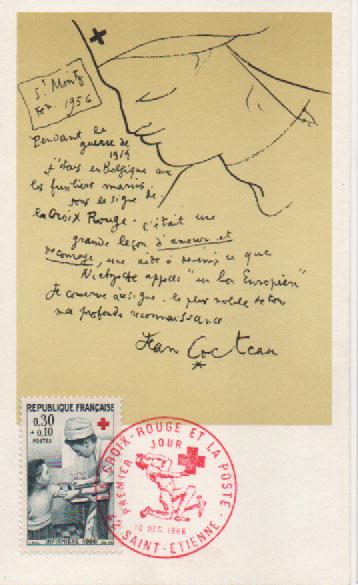 St Moritz
Fev. 1956
Pendant la
guerre de
1914
j'étais en Belgique avec
les fusiliers marins
sous le signe de
la Croix Rouge. C'était une
grande leçon d'amour et
de courage, une aide à devenir ce que
Nietzsche appelle "un bon Européen"
Je conserve à ce signe le plus noble de tous
ma profonde reconnaissance
Jean Cocteau
REPUBLIQUE FRANÇAISE
0,30
+0,10
POSTES
INFIRMIÈRE 1966
CROIX-ROUGE ET LA POSTE
PREMIER JOUR
10 DEC. 1966
42 SAINT-ETIENNE